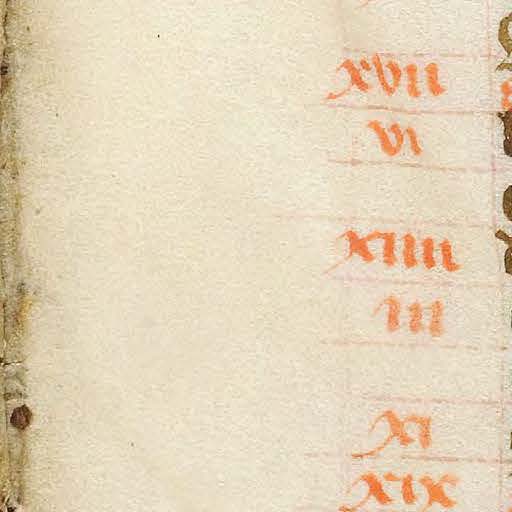 xvii
vi
xiiii
iii
xi
xix